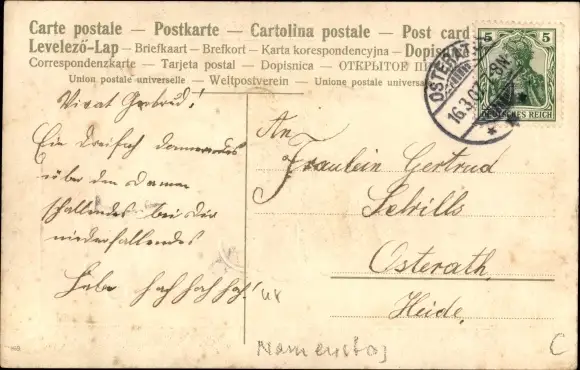 Carte postale — Postkarte — Cartolina postale — Post card
Levelező-Lap — Briefkaart — Brefkort — Karta korespondencyjna — Dopisnica
Correspondenzkarte — Tarjeta postal — Dopisnica — ОТКРЫТОЕ
Union postale universelle — Weltpostverein — Unione postale universale
5 5
DEUTSCHES REICH
OSTERATH
16.3.07. 7-8N.
Vivat
Ein Dreifach donnerndes
über den
schallendes bei dir
niederfallendes
hoch hoch hoch!
An
Fräulein Gertrud
Schills
Osterath,
Heide,
Namenstag
C